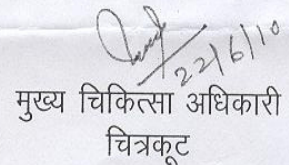 22/6/10
मुख्य चिकित्सा अधिकारी
चित्रकूट